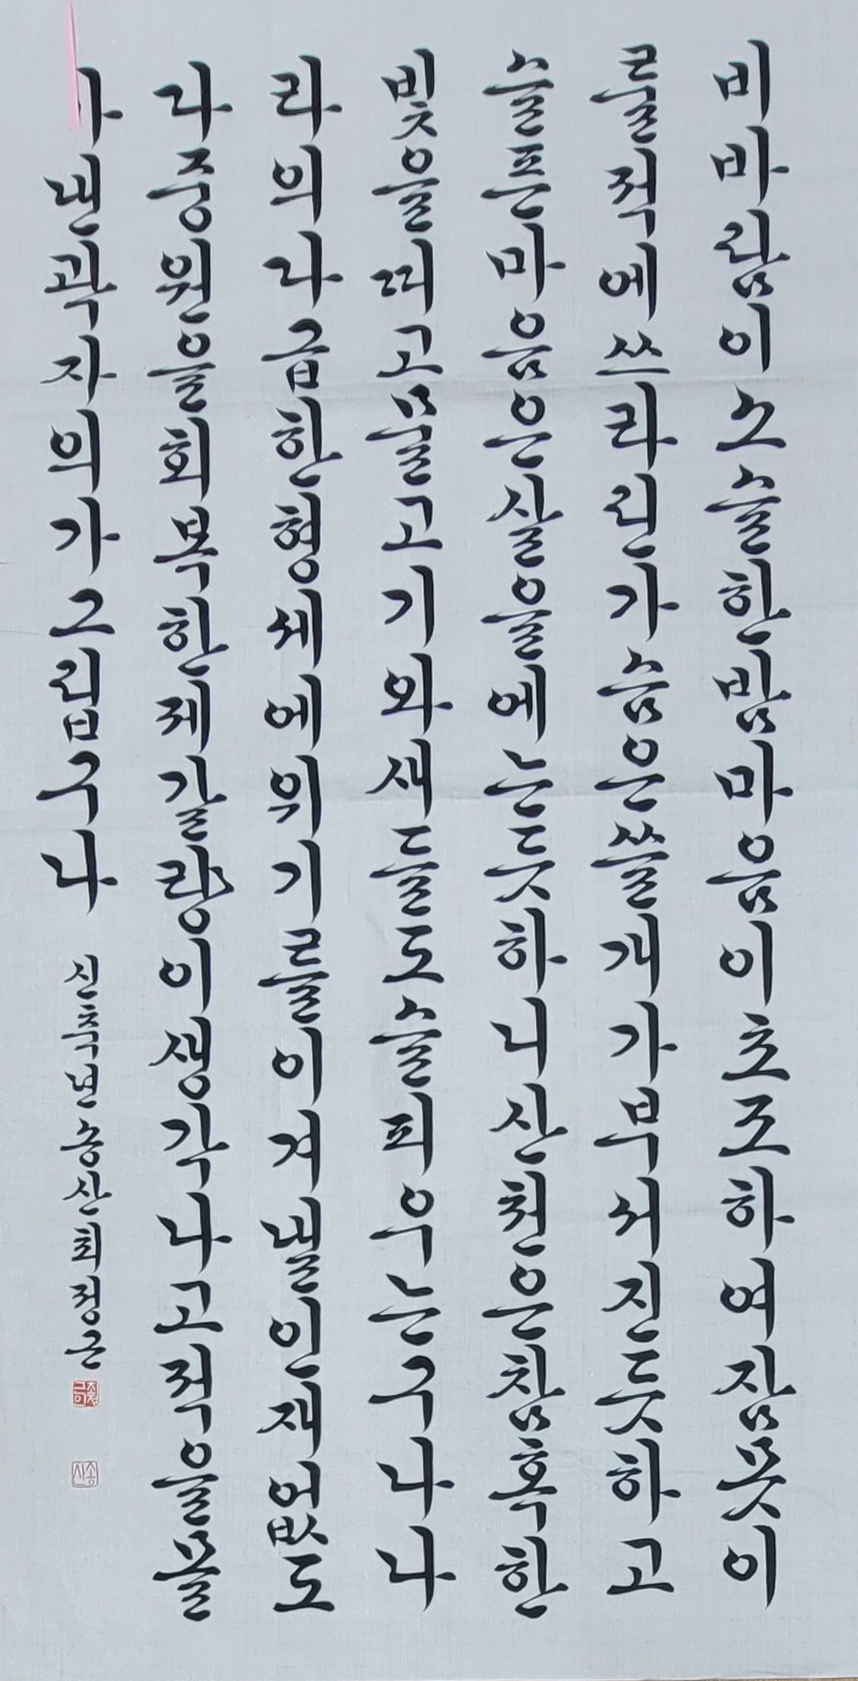 비바람이소슬한밤마음이초조하여잠못이
룰적에쓰라린가슴은쓸개가부서진듯하고
슬픈마음은살을에는듯하니산천은참혹한
빛을띠고물고기와새들도슬피우는구나나
라의다급한형세에위기를이겨낼인재없도
다중원을회복한제갈량이생각나고적을몰
낸곽자의가그립구나
신축년송산최정근
송산